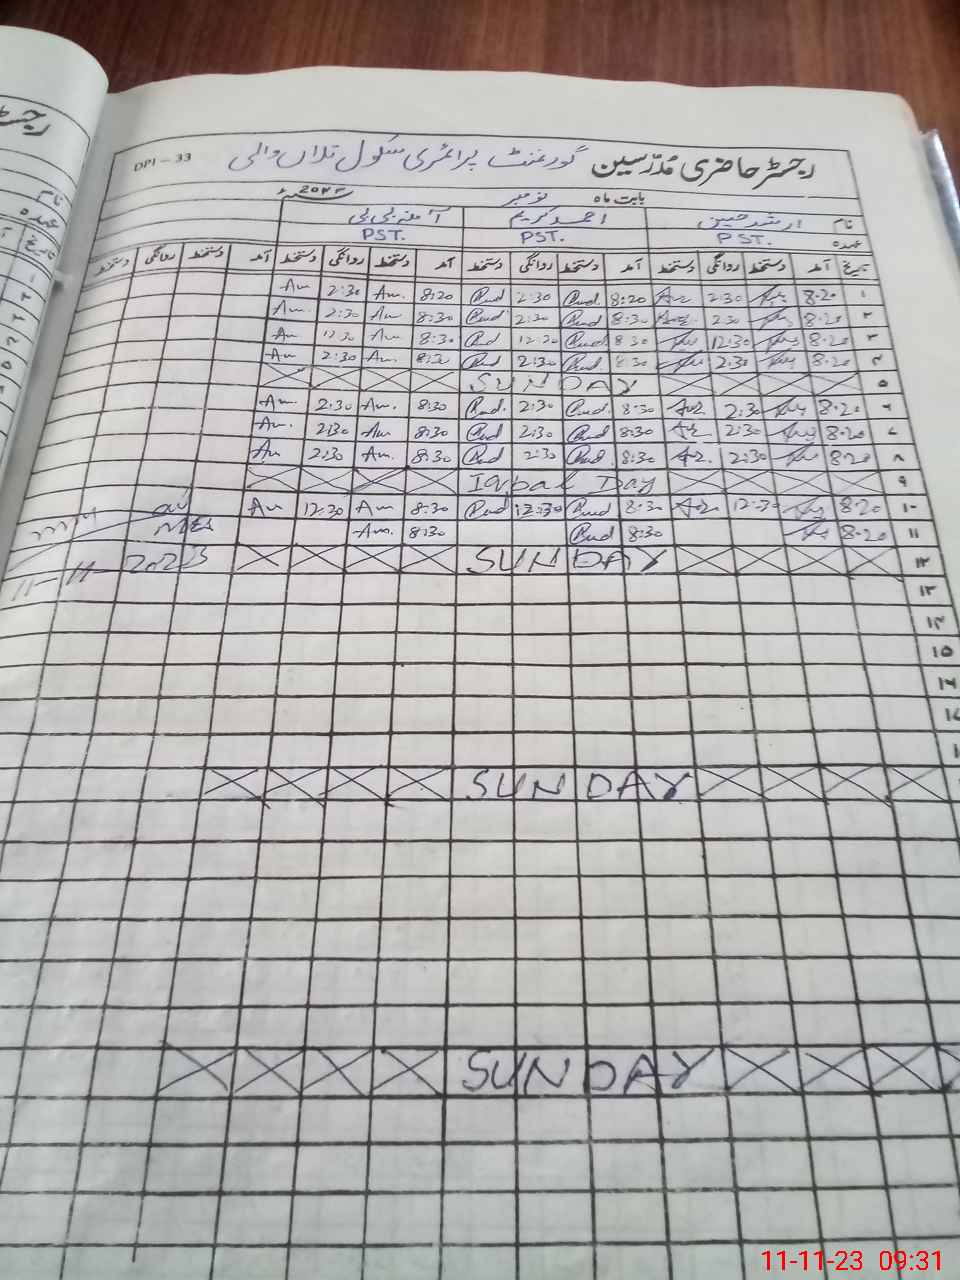 رجسٹر حاضری مُدرّسین گورنمنٹ پرائمری سکول تلاں والی DPI - 33
بابت ماہ نومبر ۲۰۲۳ء
نام ارشد حسین احمد کریم آمنہ بی بی
عہدہ PST. PST. PST.
تاریخ آمد دستخط روانگی دستخط آمد دستخط روانگی دستخط آمد دستخط روانگی دستخط آمد دستخط روانگی دستخط
۱ 8:20 2:30 8:20 2:30 8:20 Am. 2:30 Am
۲ 8:20 2:30 8:30 2:30 8:30 Am. 2:30 Am.
۳ 8:20 12:30 8:30 12:30 8:30 Am. 12:30 Am
۴ 8:20 2:30 8:30 2:30 8:30 Am. 2:30 Am
۵ SUNDAY
۶ 8:20 2:30 8:30 2:30 8:30 Am. 2:30 Am.
۷ 8:20 2:30 8:30 2:30 8:30 Am 2:30 Am.
۸ 8:20 2:30 8:30 2:30 8:30 Am. 2:30 Am
۹ Iqbal Day
۱۰ 8:20 12:30 8:30 12:30 8:30 Am 12:30 Am
۱۱ 8:20 8:30 8:30 Am.
۱۲ SUNDAY
11-11-2023
۱۳
۱۴
۱۵
۱۶
۱۷
SUNDAY
SUNDAY
11-11-23 09:31